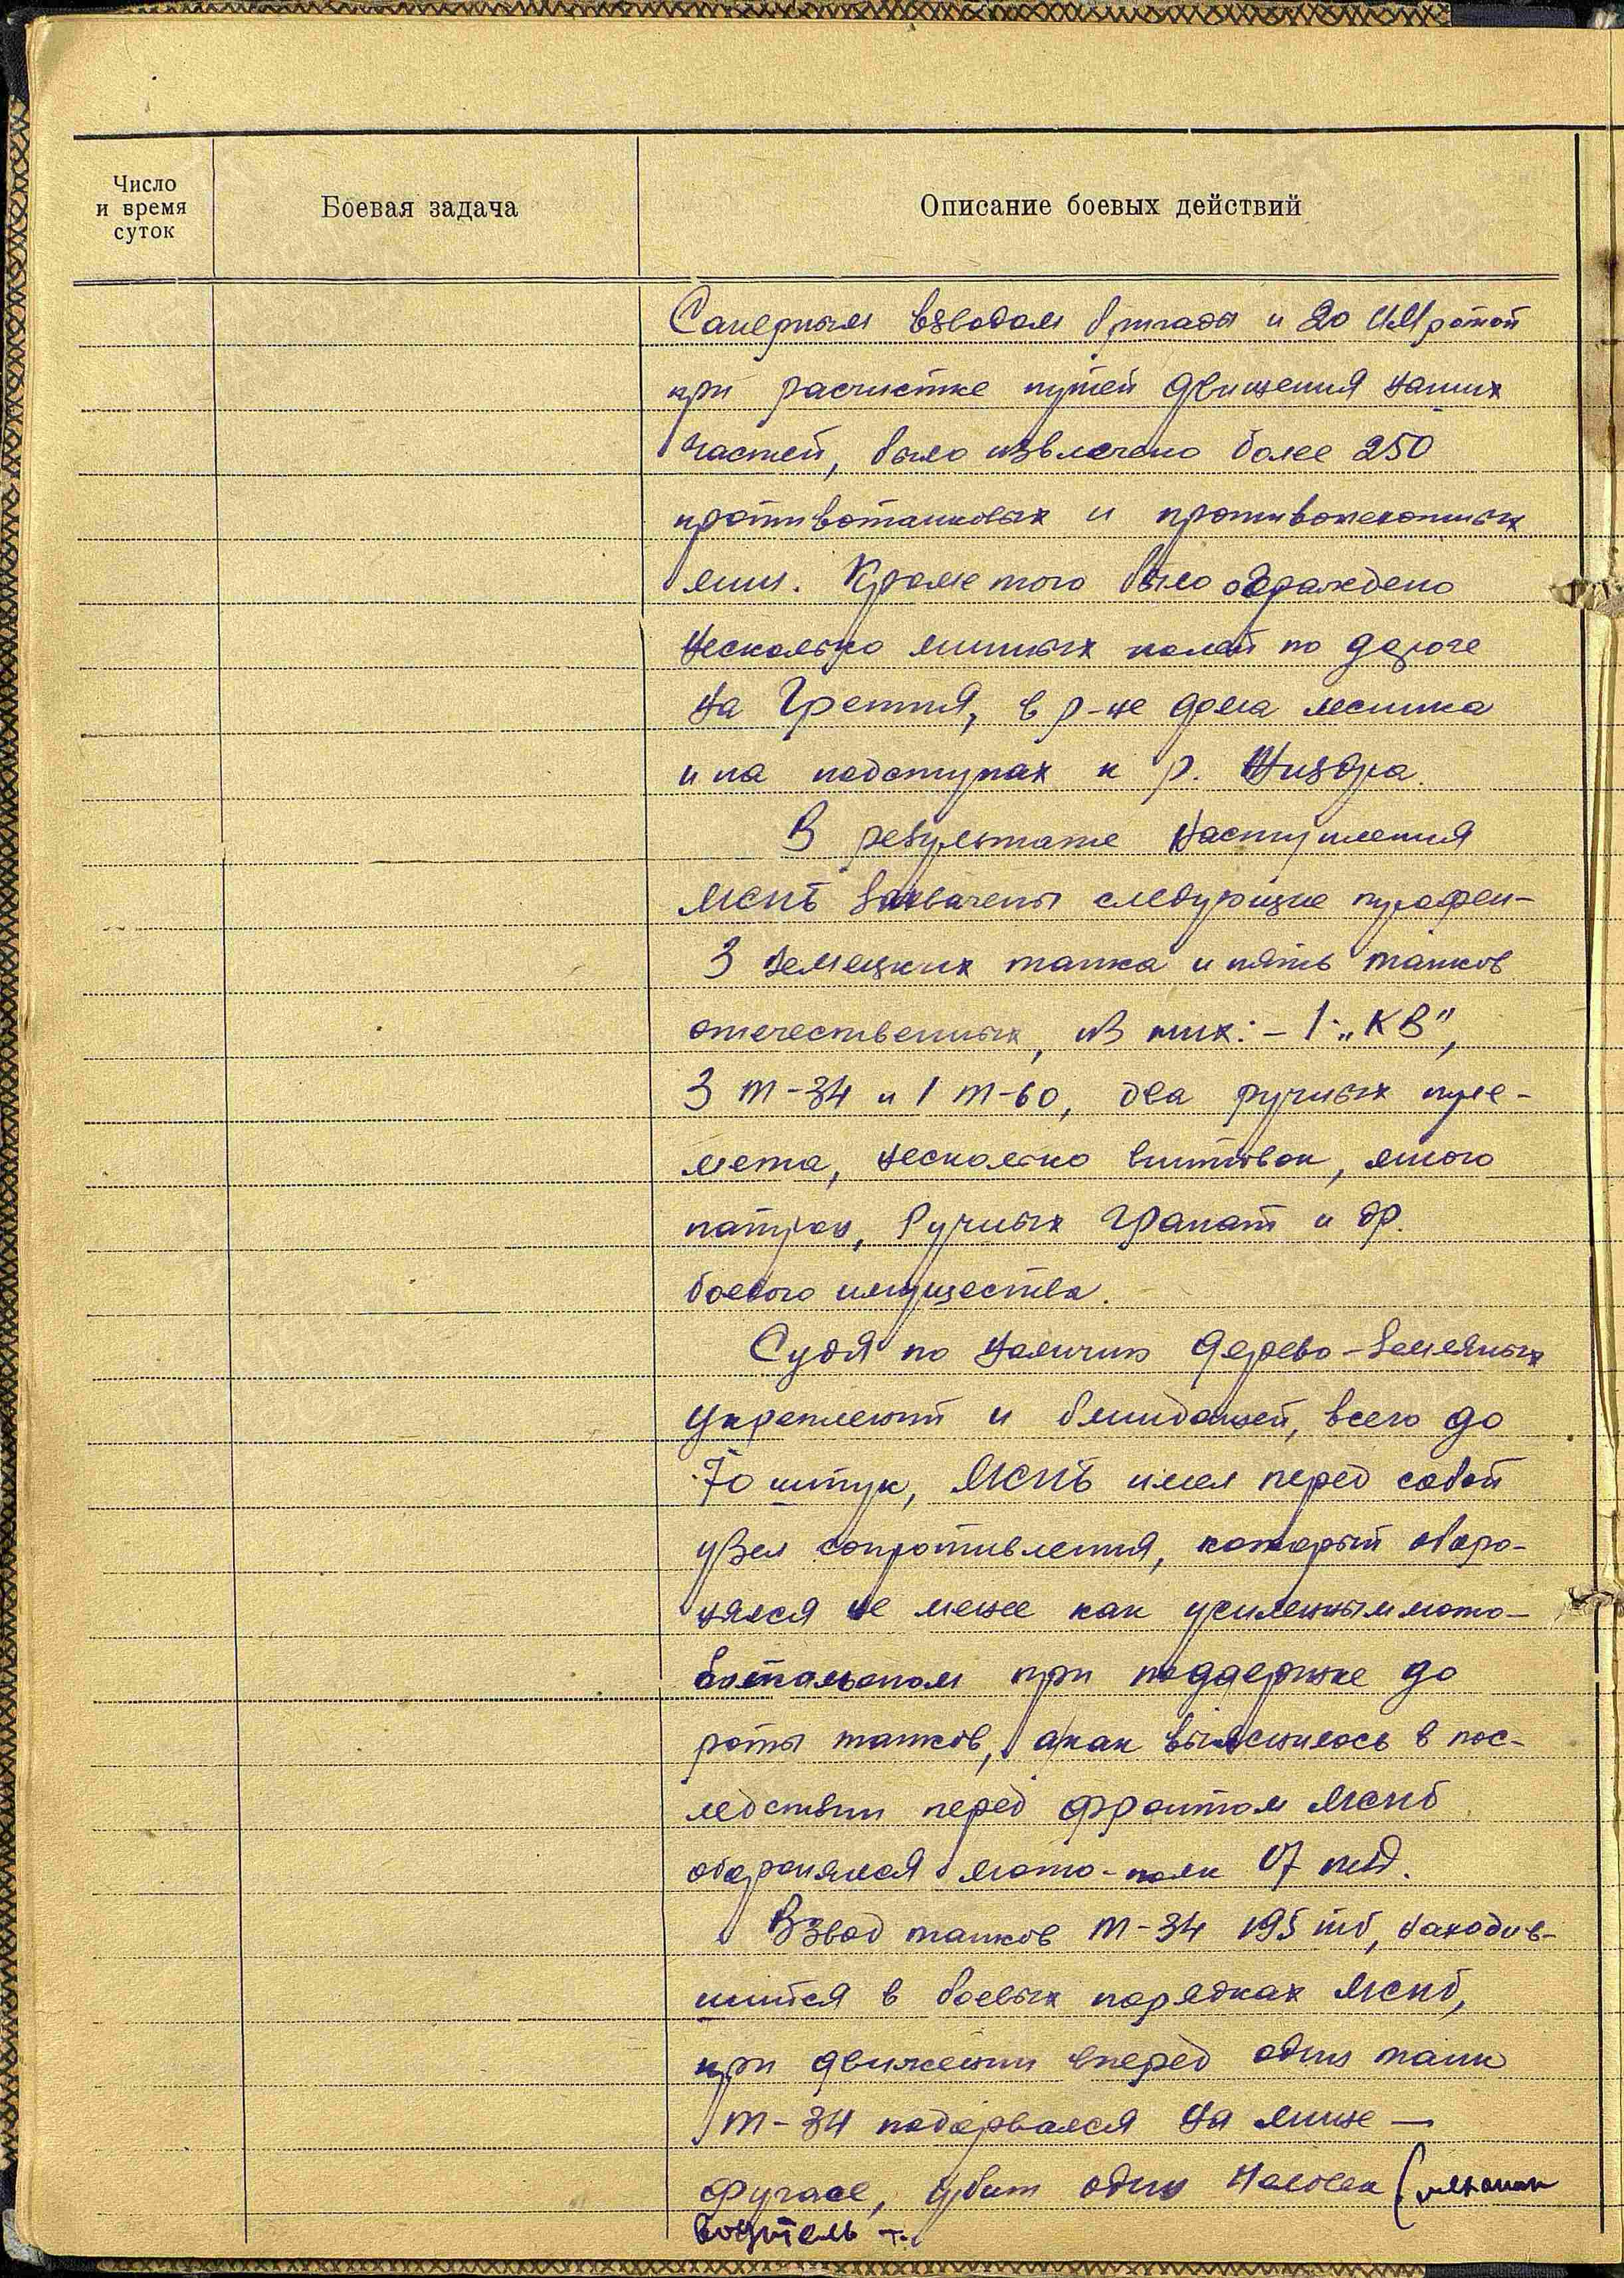 Число
и время
суток
Боевая задача
Описание боевых действий
Саперным взводом бригады и 20 ИМ ротой
при расчистке путей движения наших
частей, было извлечено более 250
противотанковых и противопехотных
мин. Кроме того было ограждено
несколько минных полей по дороге
на Гретня, в р-не дома лесника
и на подступах к р. Жиздра.
В результате наступления
МСПБ захвачены следующие трофеи-
3 немецких танка и пять танков
отечественных, из них: – 1 „КВ",
3 Т-34 и 1 Т-60, два ручных пуле-
мета, несколько винтовок, много
патрон, ручных гранат и др.
боевого имущества.
Судя по наличию дерево-земляных
укреплений и блиндажей, всего до
70 штук, МСПБ имел перед собой
узел сопротивления, который оборо-
нялся не менее как усиленным мото-
батальоном при поддержке до
роты танков, а как выяснилось в пос-
ледствии перед фронтом МСПБ
оборонялся мото-полк 17 тд.
Взвод танков Т-34 195 тб, находив-
шийся в боевых порядках МСПБ,
при движении вперед один танк
Т-34 подорвался на мине —
фугасе, убит один человек (механик
водитель т.